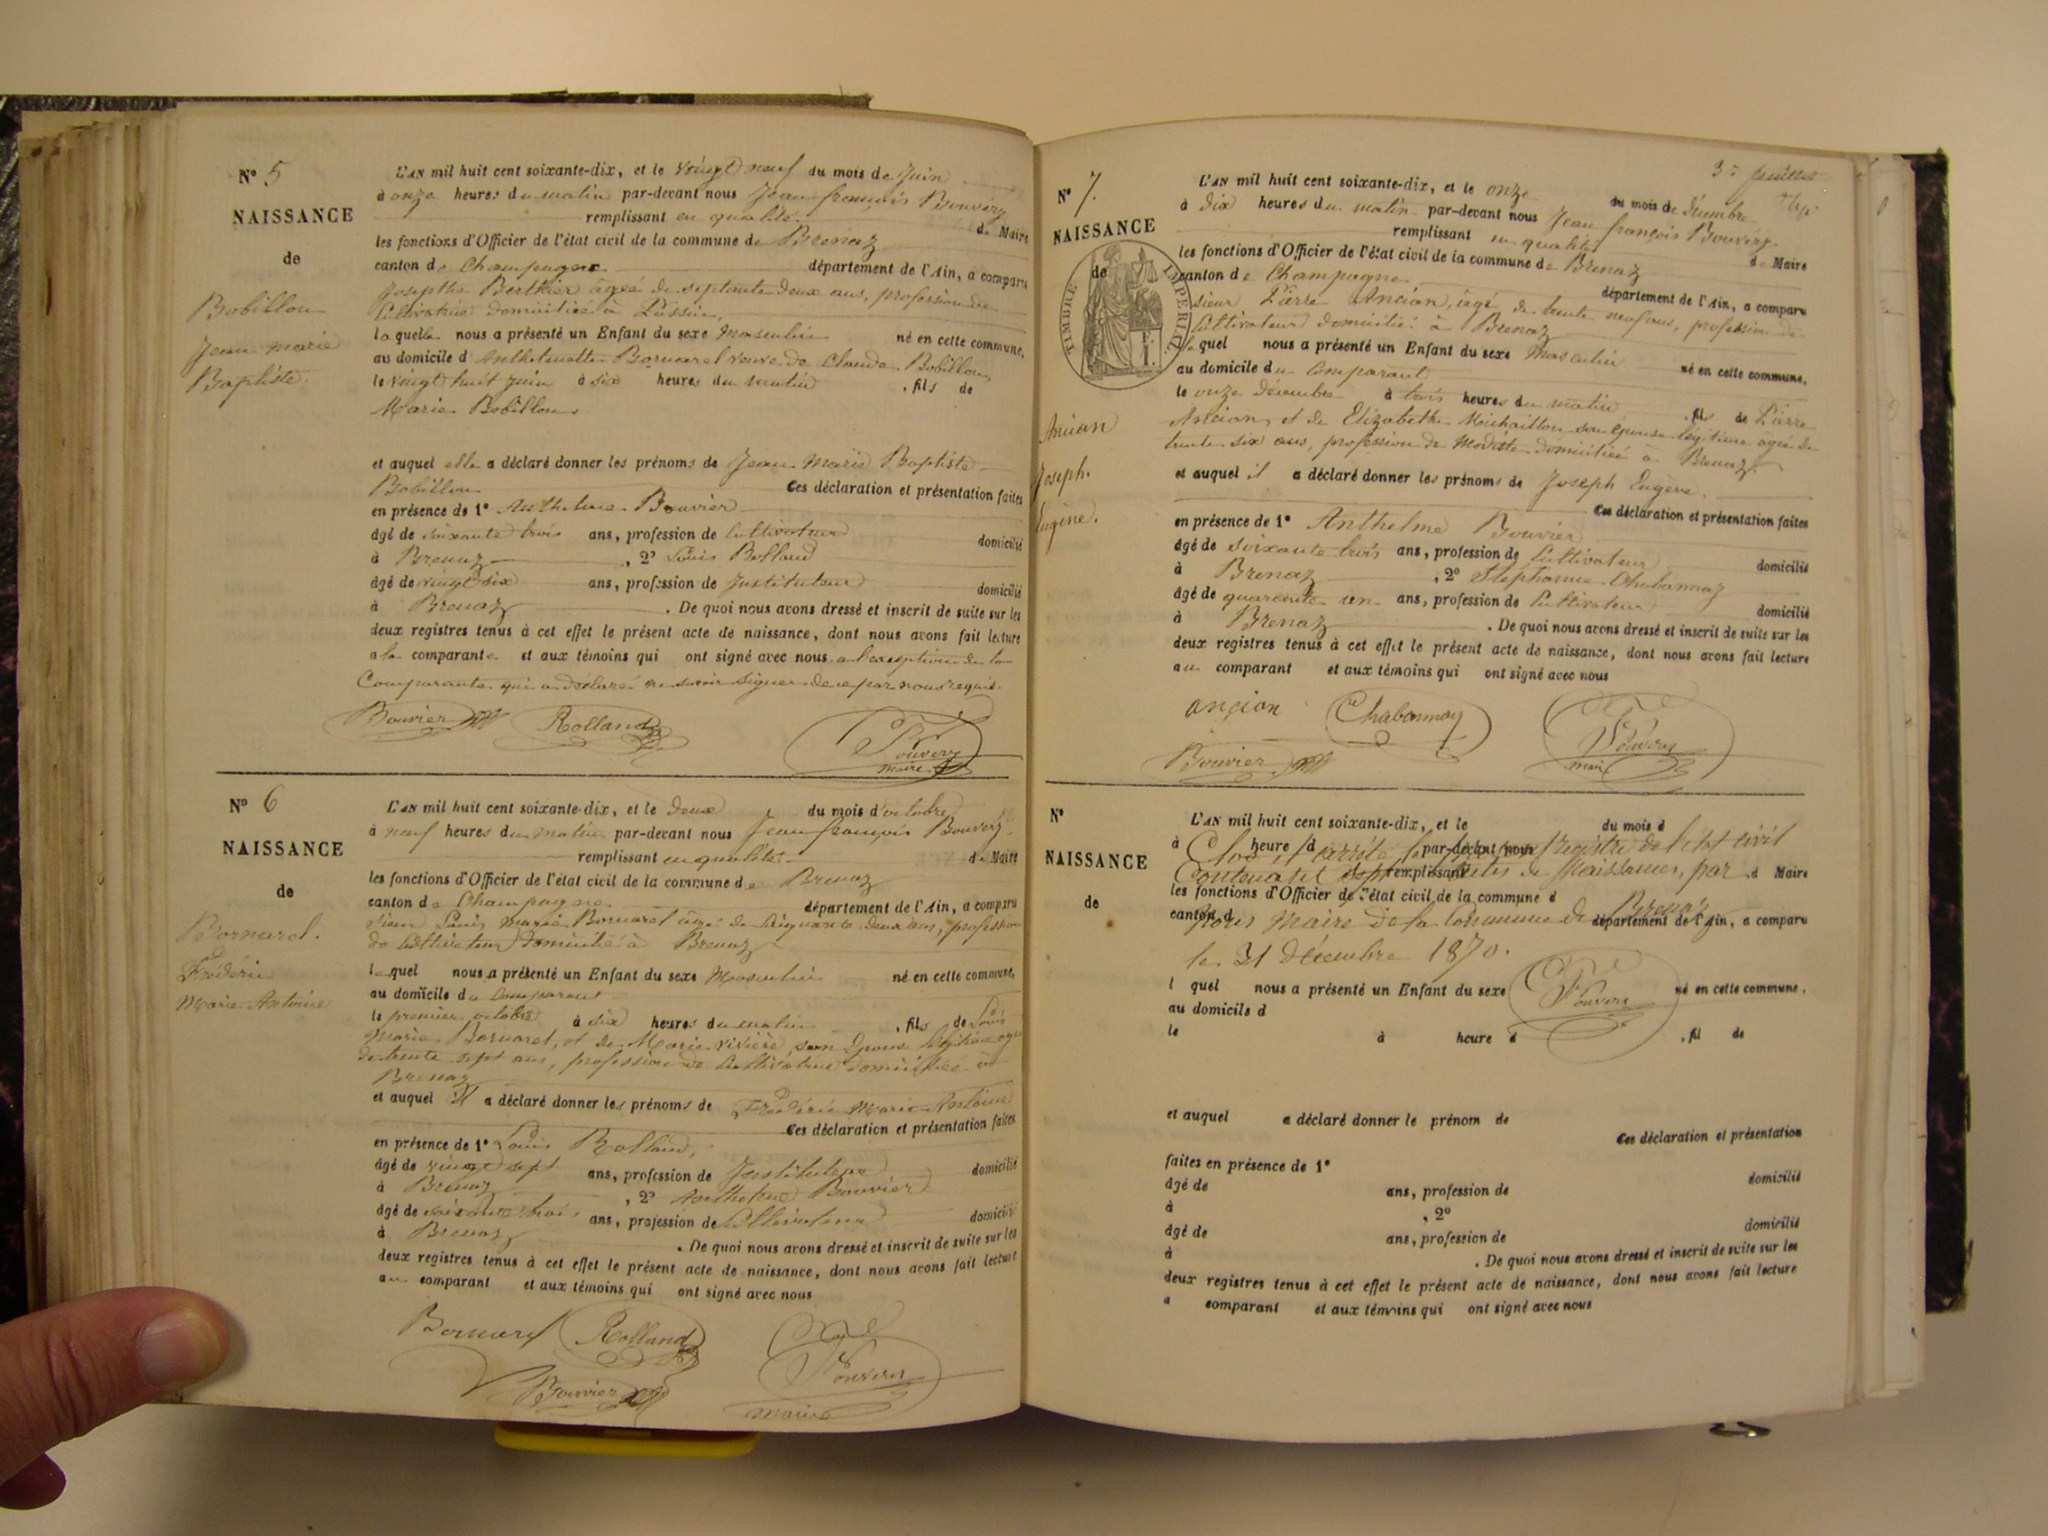 N° 5
NAISSANCE
de
Bobillon
Jean marie
Baptiste.
L'AN mil huit cent soixante-dix, et le vingt neuf du mois de Juin
à onze heures du matin par-devant nous Jean françois Bouvery
remplissant en qualité de Maire
les fonctions d'Officier de l'état civil de la commune de Brenaz
canton de Champagne département de l'Ain, a comparu
Josephte Berthier agée de septante deux ans, profession de
Cultivatrice domiciliée à Lussin,
laquelle nous a présenté un Enfant du sexe Masculin né en cette commune,
au domicile d'Anthelmette Bornarel veuve de Claude Bobillon,
le vingt huit juin à six heures du matin , fils de
Marie Bobillon
et auquel elle a déclaré donner les prénoms de Jean Marie Baptiste
Bobillon Ces déclaration et présentation faites
en présence de 1° Anthelme Bouvier
âgé de soixante trois ans, profession de Cultivateur domicilié
à Brenaz , 2° Louis Rolland
âgé de vingt six ans, profession de Instituteur domicilié
à Brenaz . De quoi nous avons dressé et inscrit de suite sur les
deux registres tenus à cet effet le présent acte de naissance, dont nous avons fait lecture
a la comparante et aux témoins qui ont signé avec nous a l'exception de la
Comparante qui a déclaré ne savoir signer de ce par nous requis.
Bouvier Rolland Bouvery
maire
N° 6
NAISSANCE
de
Bornarel.
Frédéric
Marie Antoine
L'AN mil huit cent soixante-dix, et le deux du mois d'octobre
à neuf heures du matin par-devant nous Jean françois Bouvery
remplissant en qualité de Maire
les fonctions d'Officier de l'état civil de la commune de Brenaz
canton de Champagne département de l'Ain, a comparu
sieur Louis Marie Bornarel âgé de cinquante deux ans, profession
de Cultivateur domicilié à Brenaz
lequel nous a présenté un Enfant du sexe Masculin né en cette commune,
au domicile du Comparant
le premier octobre à six heures du matin , fils de Louis
Marie Bornarel, et de Marie Rivière, son Epouse légitime agée
de trente sept ans, profession de Cultivatrice domiciliée à
Brenaz
et auquel Il a déclaré donner les prénoms de Frédéric Marie Antoine
Ces déclaration et présentation faites
en présence de 1° Louis Rolland,
âgé de vingt sept ans, profession de Instituteur domicilié
à Brenaz , 2° Anthelme Bouvier
âgé de soixante trois ans, profession de Cultivateur domicilié
à Brenaz . De quoi nous avons dressé et inscrit de suite sur les
deux registres tenus à cet effet le présent acte de naissance, dont nous avons fait lecture
au comparant et aux témoins qui ont signé avec nous
Bornarel Rolland Bouvery
Bouvier maire
3e feuillet
N° 7.
NAISSANCE
de
TIMBRE IMPERIAL
Ancian
Joseph.
Eugène.
L'AN mil huit cent soixante-dix, et le onze du mois de Décembre
à dix heures du matin par-devant nous Jean françois Bouvery
remplissant en qualité de Maire
les fonctions d'Officier de l'état civil de la commune de Brenaz
canton de Champagne département de l'Ain, a comparu
sieur Pierre Ancian, âgé de trente neuf ans, profession de
Cultivateur domicilié à Brenaz
lequel nous a présenté un Enfant du sexe Masculin né en cette commune,
au domicile du Comparant
le onze décembre à trois heures du matin , fils de Pierre
Ancian, et de Elizabeth Michaillon son épouse légitime agée de
trente six ans, profession de Modiste domiciliée à Brenaz.
et auquel il a déclaré donner les prénoms de Joseph Eugène.
Ces déclaration et présentation faites
en présence de 1° Anthelme Bouvier
âgé de soixante trois ans, profession de Cultivateur domicilié
à Brenaz , 2° Stéphanne Chabannay
âgé de quarante un ans, profession de Cultivateur domicilié
à Brenaz . De quoi nous avons dressé et inscrit de suite sur les
deux registres tenus à cet effet le présent acte de naissance, dont nous avons fait lecture
au comparant et aux témoins qui ont signé avec nous
ancian Chabannay Bouvery
Bouvier maire
N°
NAISSANCE
de
L'AN mil huit cent soixante-dix, et le du mois d
à heure d par-devant nous
Clos et arrêté le présent registre de l'état civil
remplissant d Maire
Contenant sept actes de Naissances, par
les fonctions d'Officier de l'état civil de la commune d
canton d département de l'Ain, a comparu
Nous Maire de la Commune de Brenaz
le 31 décembre 1870.
Bouvery
l quel nous a présenté un Enfant du sexe né en cette commune,
au domicile d
le à heure d , fil de
et auquel a déclaré donner le prénom de
Ces déclaration et présentation
faites en présence de 1°
âgé de ans, profession de domicilié
à , 2°
âgé de ans, profession de domicilié
à . De quoi nous avons dressé et inscrit de suite sur les
deux registres tenus à cet effet le présent acte de naissance, dont nous avons fait lecture
a comparant et aux témoins qui ont signé avec nous